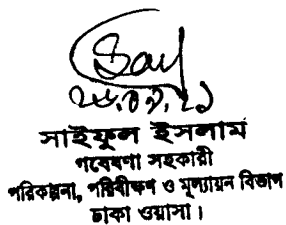 ২৮.০৯.২১
সাইফুল ইসলাম
গবেষণা সহকারী
পরিকল্পনা, পরিবীক্ষণ ও মূল্যায়ন বিভাগ
ঢাকা ওয়াসা।